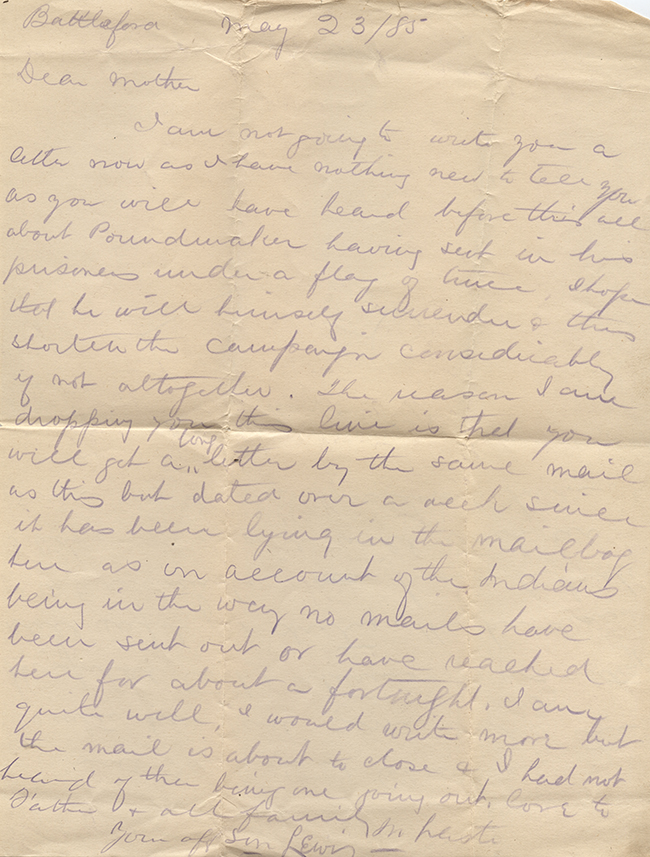 Battleford May 23/85
Dear Mother
I am not going to write you a
letter now as I have nothing new to tell you
as you will have heard before this all
about Poundmaker having sent in his
prisoners under a flag of truce, I hope
that he will himself surrender & thus
shorten the campaign considerably
if not altogether. The reason I am
dropping you this line is that you
will get a long letter by the same mail
as this but dated over a week since
it has been lying in the mailbag
here as on account of the Indians
being in the way no mails have
been sent out or have reached
here for about a fortnight. I am
quite well, I would write more but
the mail is about to close & I had not
heard of there being one going out. Love to
Father & all family In haste
Your aff Son Lewis